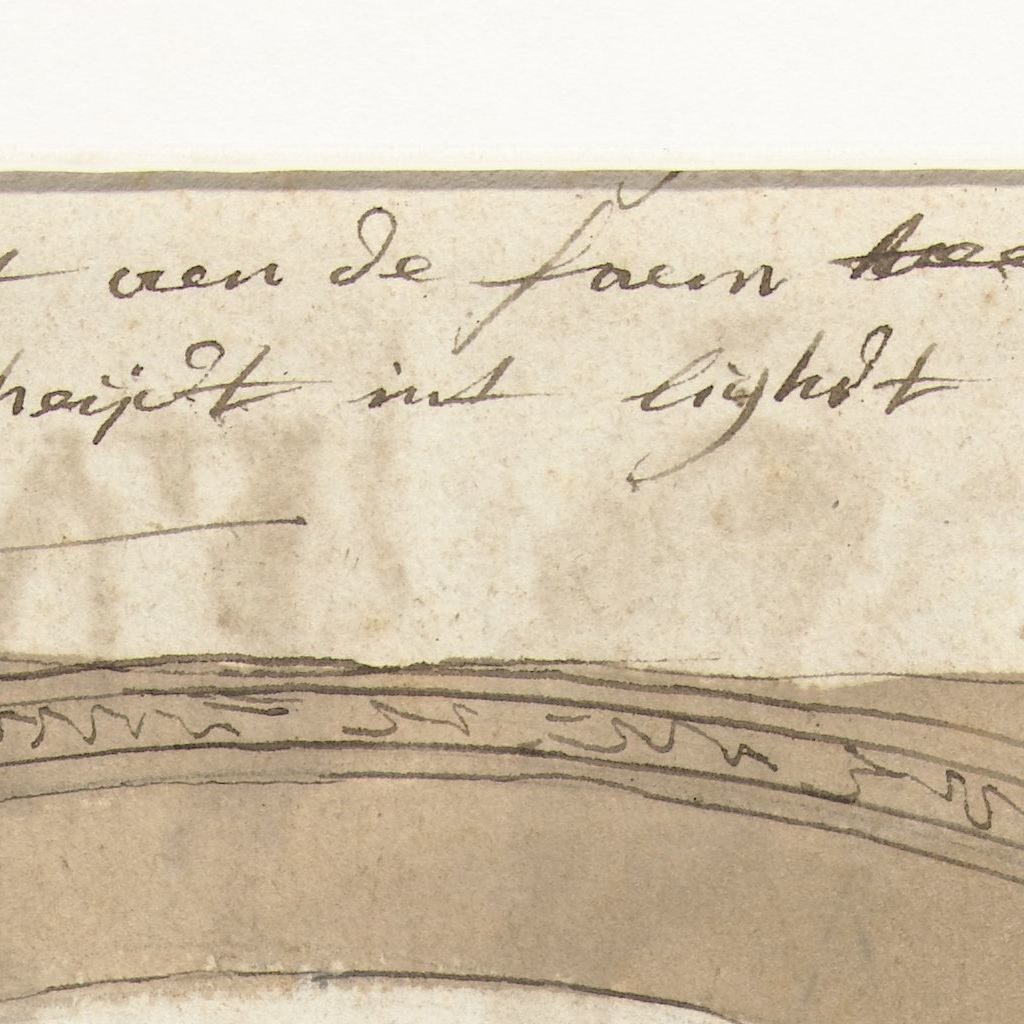 t aen de faem
heijdt int lighdt